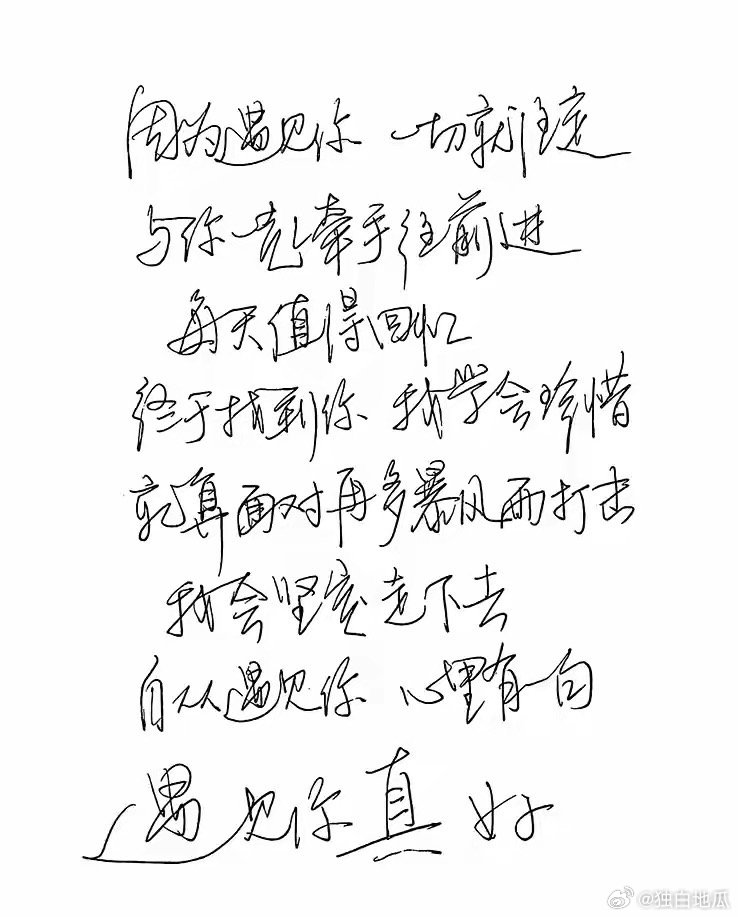 因为遇见你 一切就注定
与你一起牵手往前进
每天值得回忆
终于找到你 我学会珍惜
就算面对再多暴风雨打击
我会坚定走下去
自从遇见你 心里有一句
遇见你真好
@独白地瓜